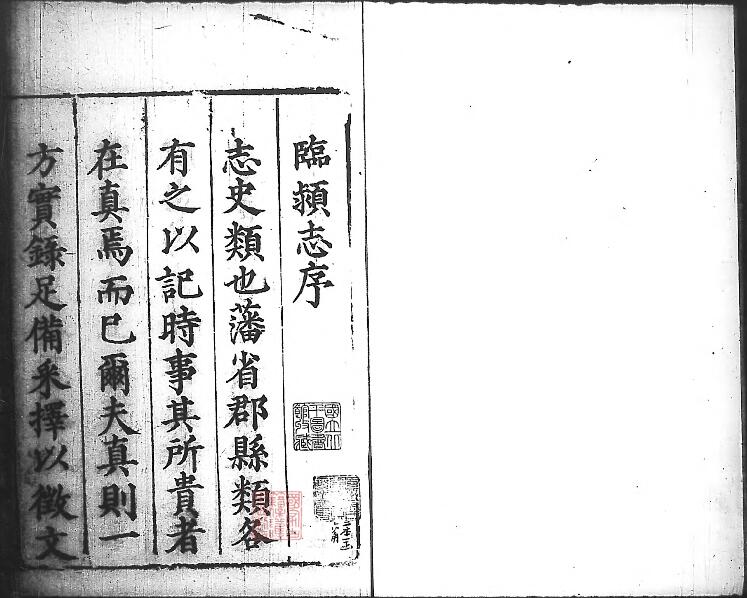 臨潁志序
志史類也藩省郡縣類各
有之以記時事其所貴者
在真焉而已爾夫真則一
方實錄足備采擇以徵文
國立北
平圖書
館收藏